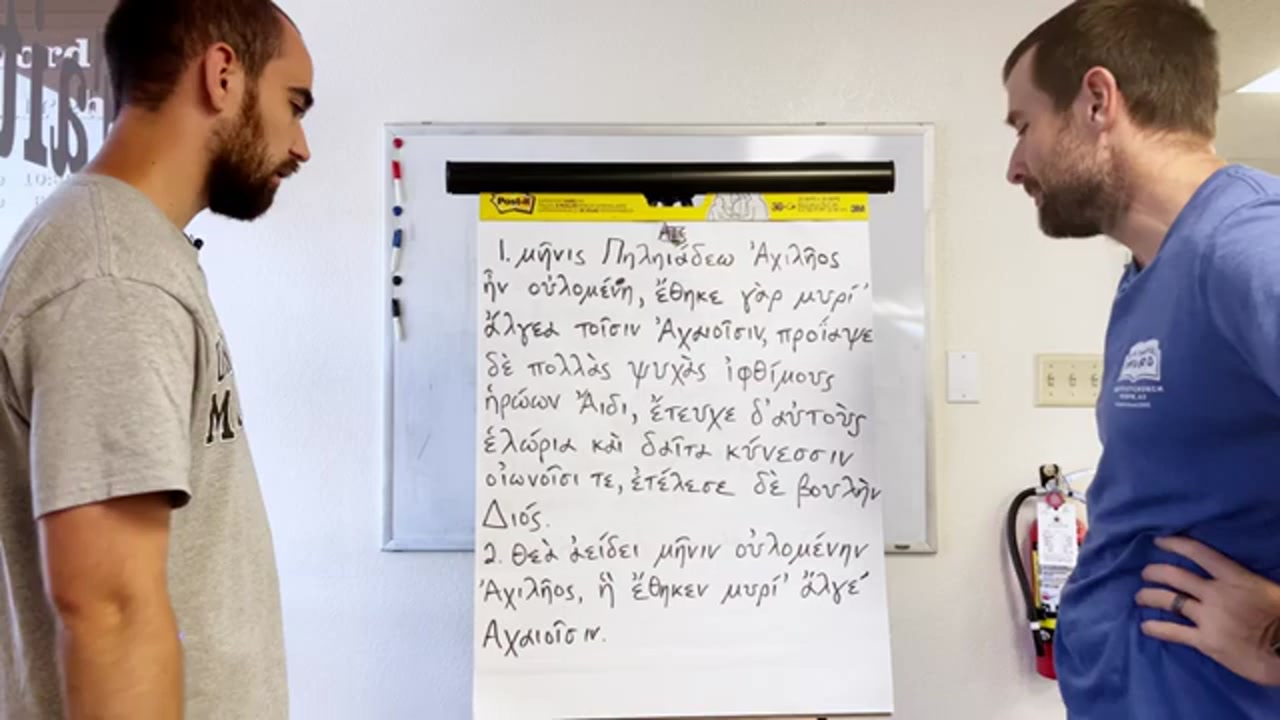 ord
Post-it
3M
1. μῆνις Πηληιάδεω Ἀχιλῆος
ἣν οὐλομένη, ἔθηκε γὰρ μυρί'
ἄλγεα τοῖσιν Ἀχαιοῖσιν, προΐαψε
δὲ πολλὰς ψυχὰς ἰφθίμους
ἡρώων Ἄιδι, ἔτευχε δ'αὐτοὺς
ἑλώρια καὶ δαῖτα κύνεσσιν
οἰωνοῖσι τε, ἐτέλεσε δὲ βουλὴν
Διός.
2. Θεὰ ἀείδει μῆνιν οὐλομένην
Ἀχιλῆος, ἣ ἔθηκεν μυρί' ἄλγε'
Ἀχαιοῖσιν.